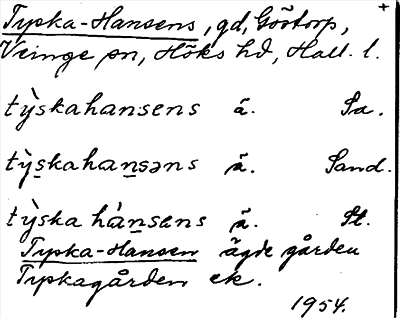 Tyska-Hansens, gd, Göstorp, +
Veinge sn, Höks hd, Hall. l.
tỳskahansens ä. Sa.
tỳskahansəns ä. Sand.
tỳska hànsens ä. St.
Tyska-Hansen ägde gården
Tyskagården ek.
1954.